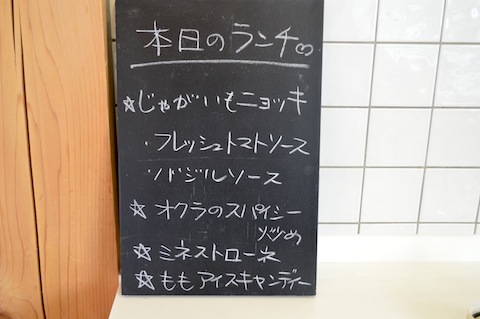 本日のランチ♡
☆じゃがいもニョッキ
・フレッシュトマトソース
・バジルソース
☆オクラのスパイシー
炒め
☆ミネストローネ
☆ももアイスキャンディー